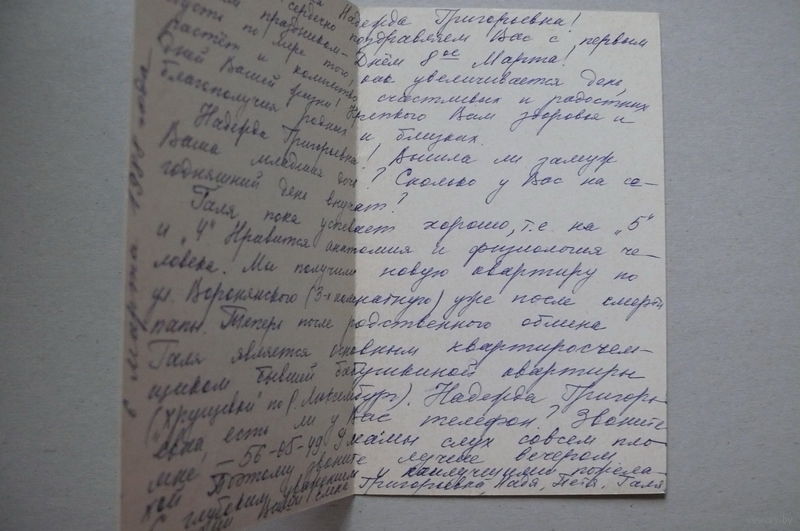 Надежда Григорьевна!
сердечно поздравляем Вас с первым
праздником – Днём 8ое Марта!
Пусть по мере того, как увеличивается день,
растёт и количество счастливых и радостных
дней Вашей жизни! Крепкого Вам здоровья и
благополучия родных и близких.
Надежда Григорьевна! Вышла ли замуж
Ваша младшая дочь? Сколько у Вас на се-
годняшний день внучат?
Галя пока успевает хорошо, т.е. на „5"
и „4" Нравится анатомия и физиология че-
ловека. Мы получили новую квартиру по
ул. Воронянского (3-х комнатную) уже после смерти
папы. Теперь после родственного обмена
Галя является основным квартиросъем-
щиком бывшей бабушкиной квартиры
("Хрущевой" по Р. Люксембург). Надежда Григорь-
евна, есть ли у Вас телефон? Звоните
мне – 56-05-49 У мамы слух совсем пло-
хой Поэтому звоните лучше вечером.
С глубоким уважением и наилучшими пожела-
Григорьевна, Надя, Петя, Галя
марта 1988 года